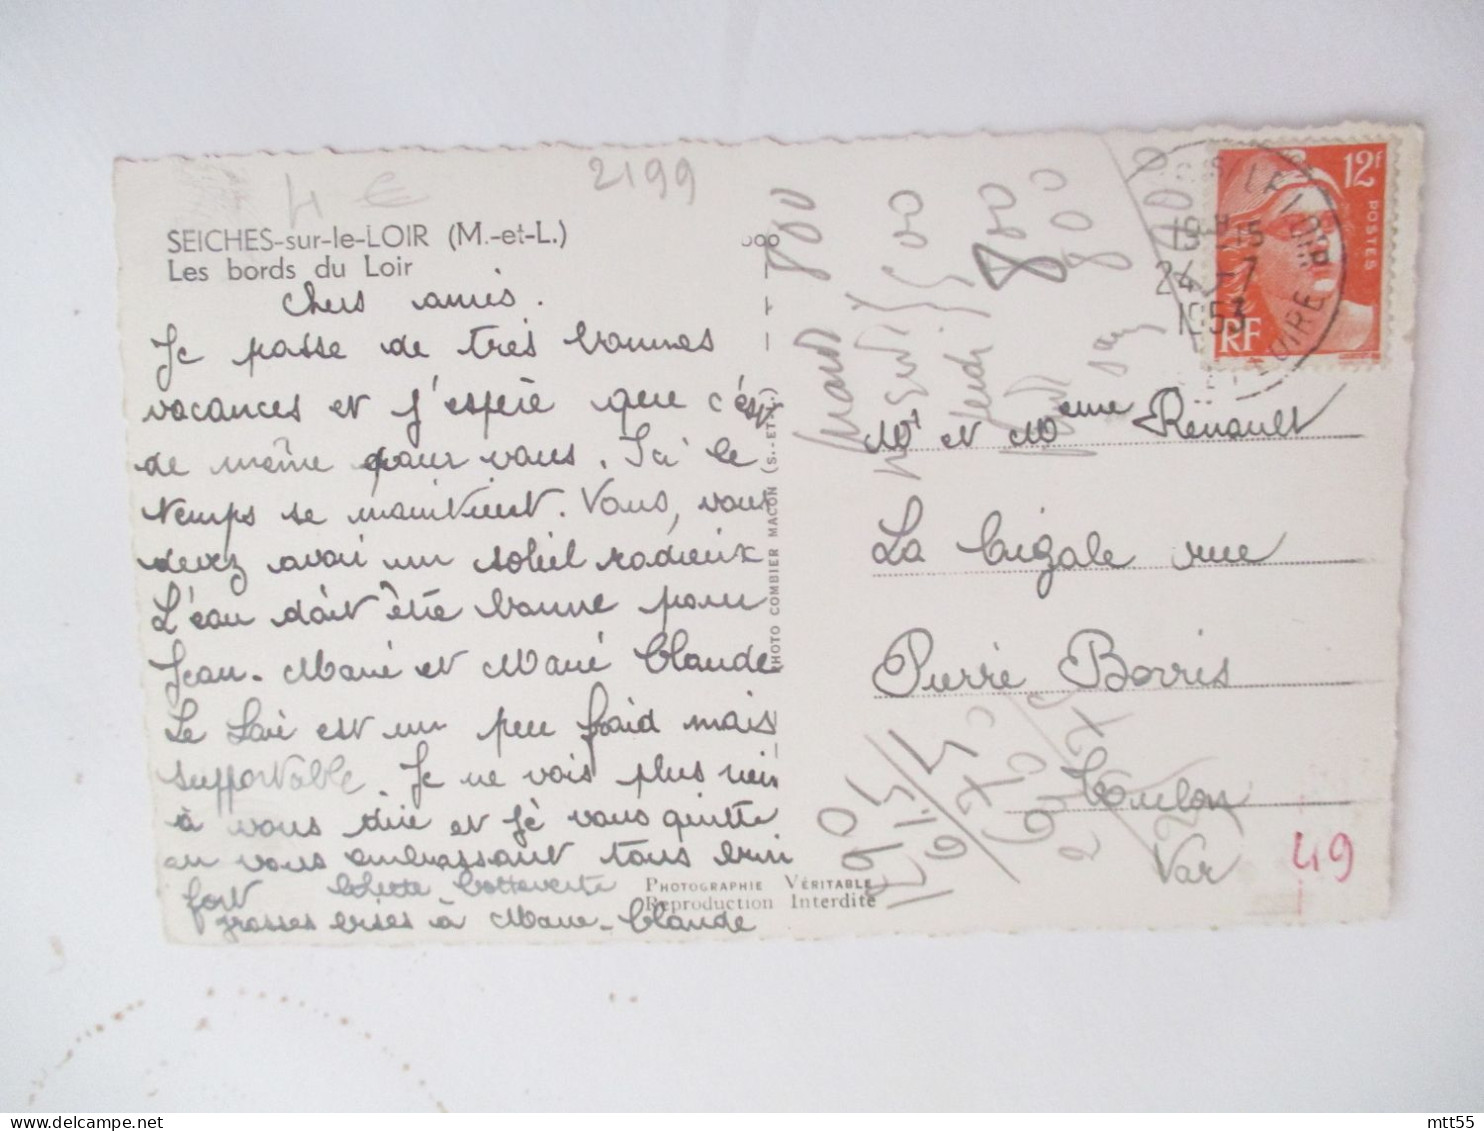 4 €
2199
SEICHES-sur-le-LOIR (M.-et-L.)
Les bords du Loir
Chers amis.
Je passe de très bonnes
vacances et j'espère que c'est
de même pour vous. Ici le
temps se maintient. Vous, vous
devez avoir un soleil radieux
L'eau doit être bonne pour
Jean-Marie et Marie Claude
Le Loir est un peu froid mais
supportable. Je ne vois plus rien
à vous dire et je vous quitte
en vous embrassant tous bien
fort
grosses bises à Marie-Claude
PHOTOGRAPHIE VÉRITABLE
Reproduction Interdite
PHOTO COMBIER MACON (S.-ET-L.)
12f
POSTES
RF
19H15
24-7
1953
LOIRE
Mr et Mme Renault
La Cigale rue
Pierre Borris
Toulon
Var
49
mardi 800
500
jeudi 800
800
mtt55